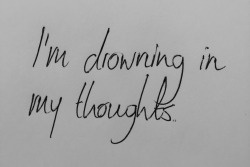 I'm drowning in
my thoughts.